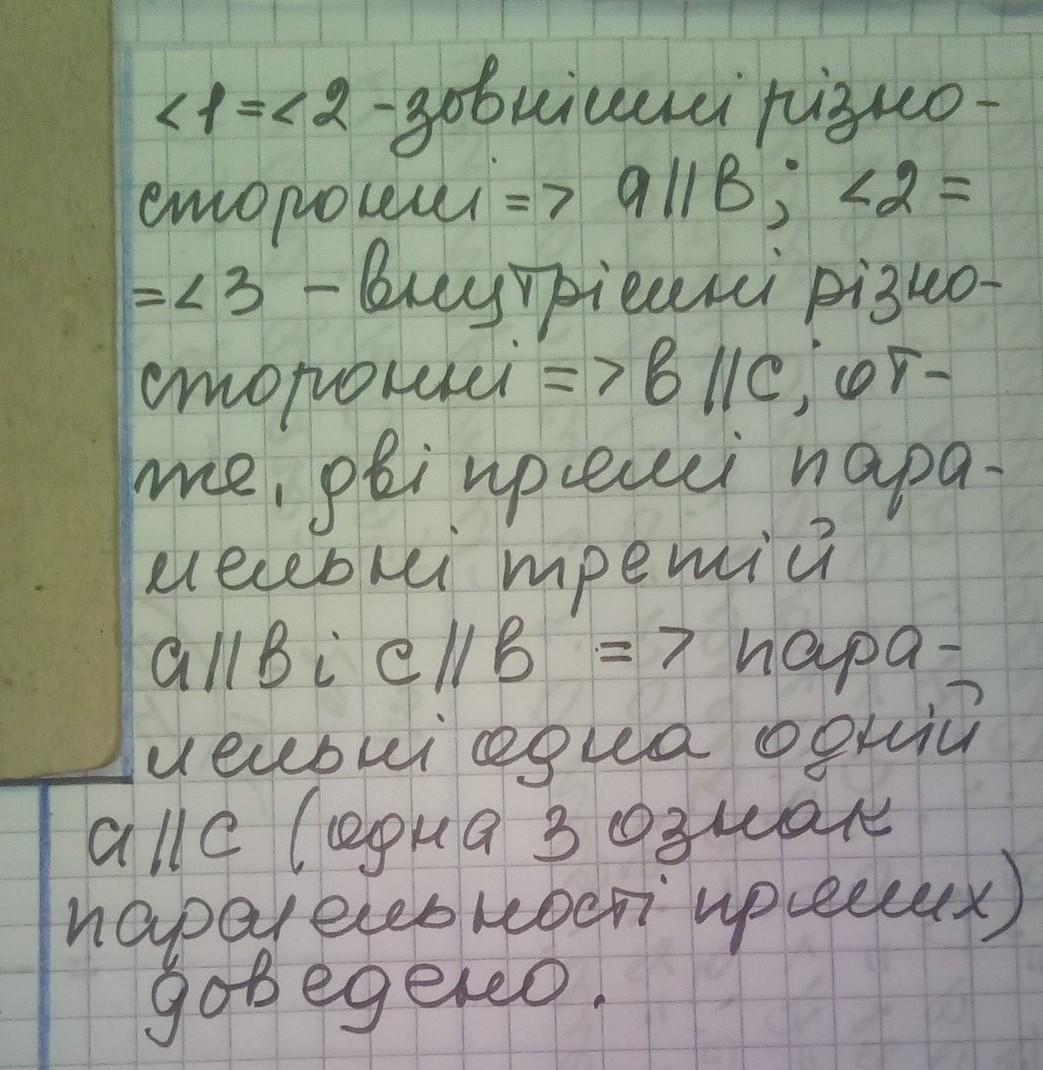 <1=<2 -зовнішні різно-
сторонні => a||в; <2=
=<3 - внутрішні різно-
сторонні => в||с; от-
же, дві прямі пара-
лельні третій
a||в і с||в => пара-
лельні одна одній
a||с (одна з ознак
паралельності прямих)
доведено.